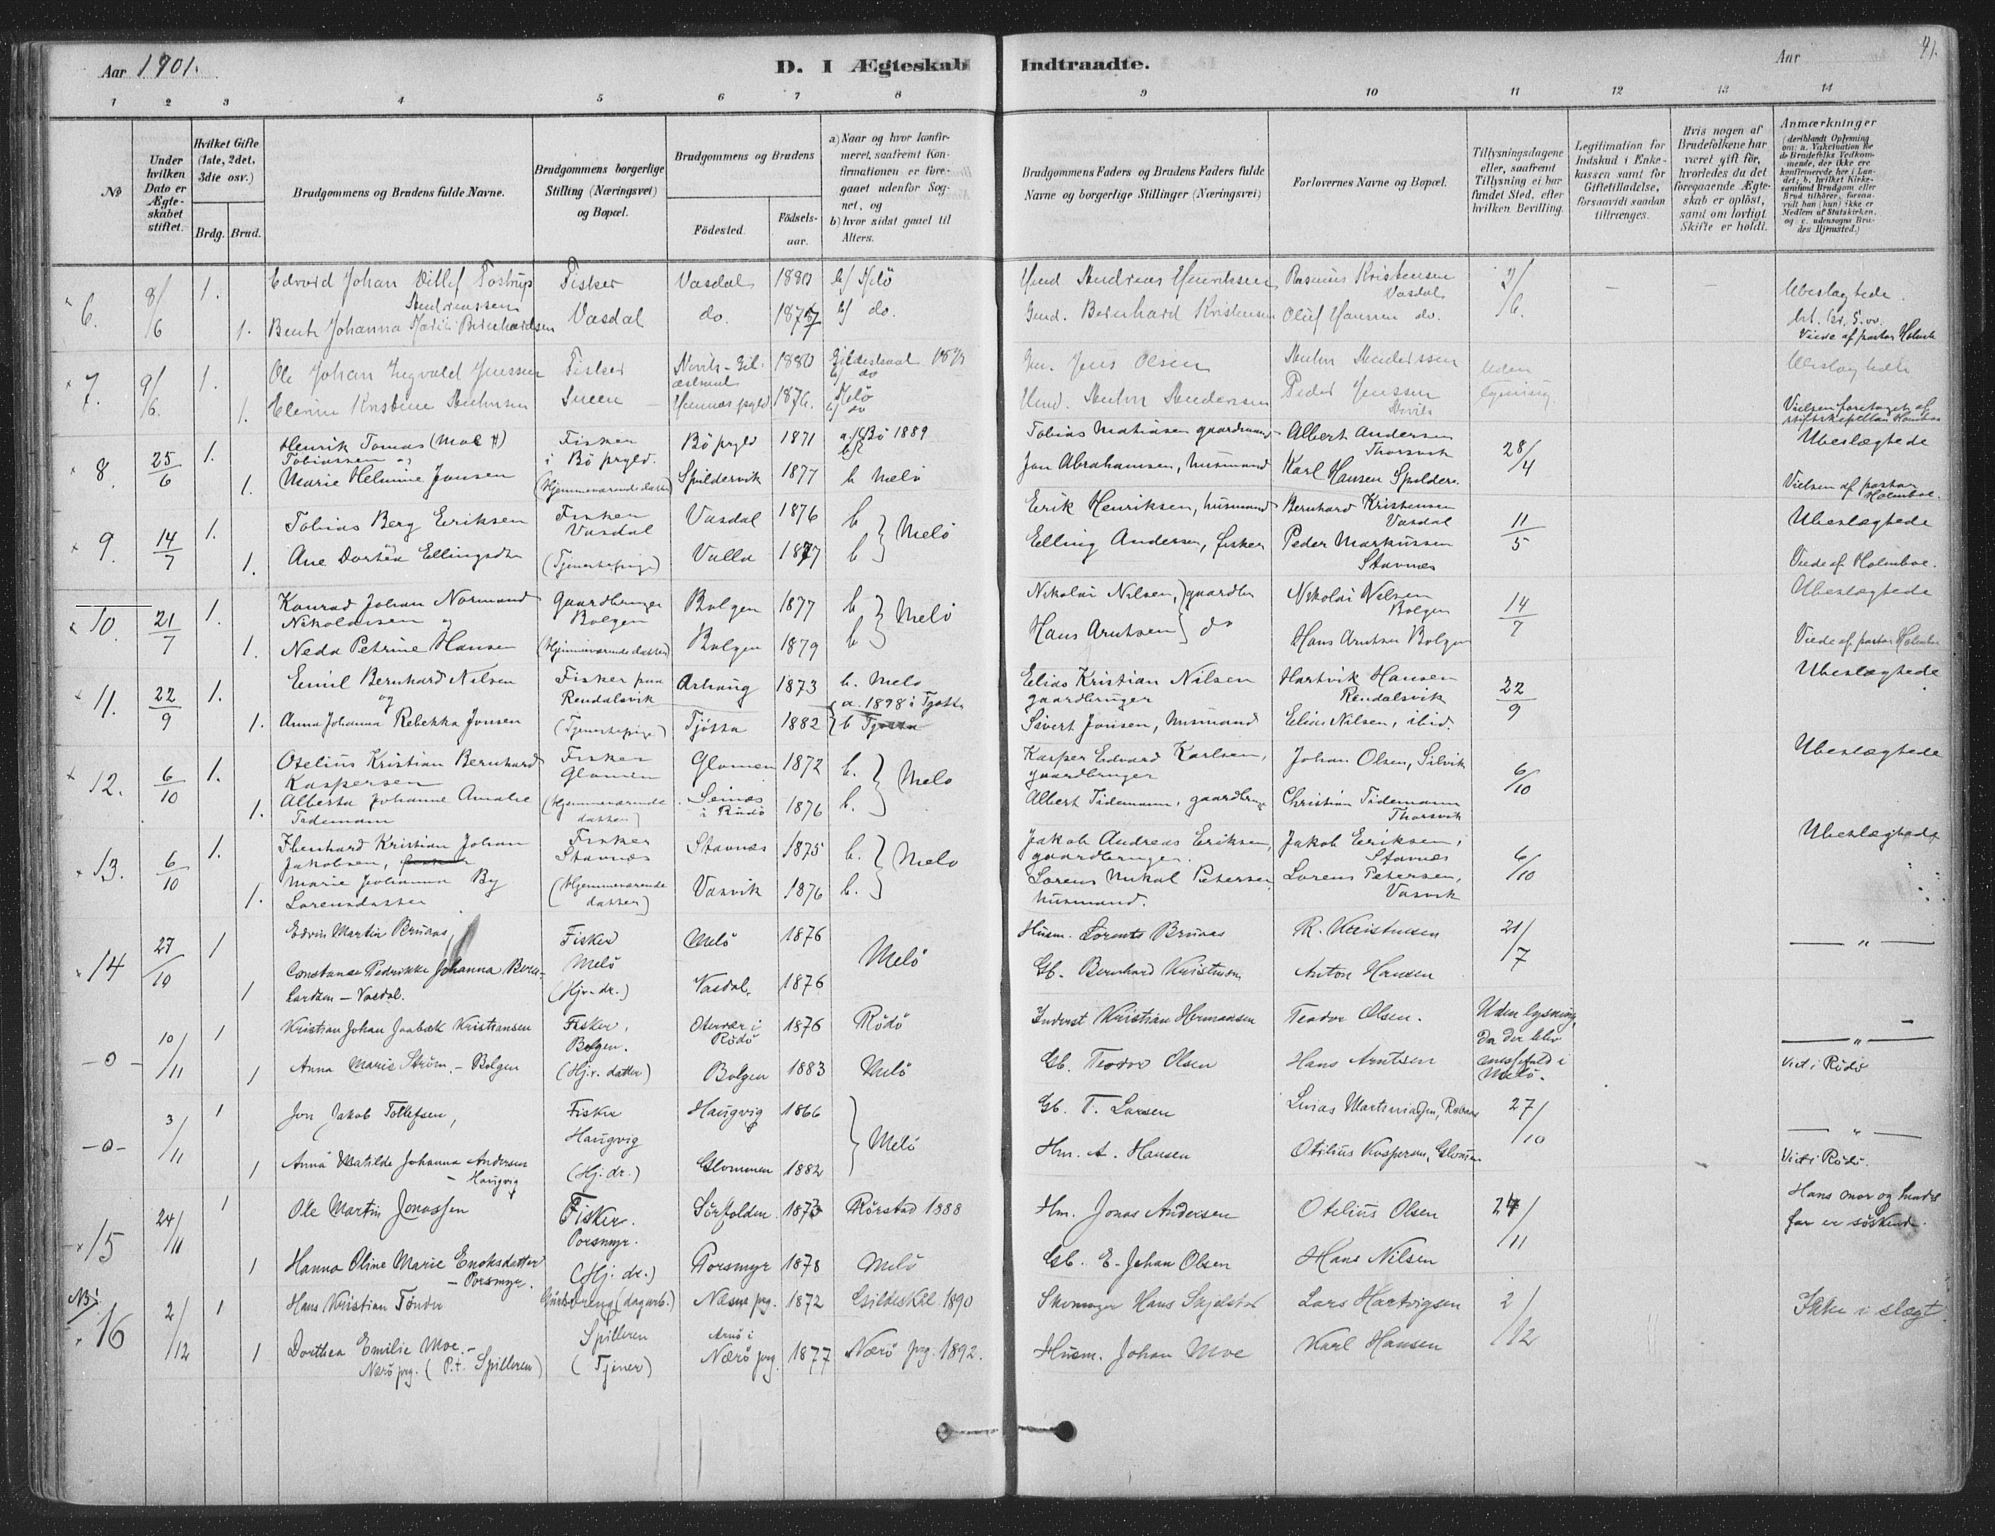 Aar 1901.
D. I Ægteskab Indtraadte.
Aar
91.
1 2 3 4 5 6 7 8 9 10 11 12 13 14
No
Under hvilken Dato er Ægteskabet stiftet.
Hvilket Gifte (1ste, 2det, 3die osv.)
Brdg. Brud.
Brudgommens og Brudens fulde Navne.
Brudgommens borgerlige Stilling (Næringsvei) og Bopæl.
Brudgommens og Brudens
Fødested.
Fødselsaar.
a) Naar og hvor konfirmeret, saafremt Konfirmationen er foregaaet udenfor Sognet, og
b) hvor sidst gaaet til Alters.
Brudgommens Faders og Brudens Faders fulde Navne og borgerlige Stillinger (Næringsvei)
Forlovernes Navne og Bopæl.
Tillysningsdagene eller, saafremt Tillysning ei har fundet Sted, efter hvilken Bevilling.
Legitimation for Indskud i Enkekassen samt for Giftetilladelse, forsaavidt saadan tiltrænges.
Hvis nogen af Brudefolkene har været gift før, hvorledes da det foregaaende Ægteskab er opløst, samt om lovligt Skifte er holdt.
Anmærkninger
(deriblandt Oplysning om: a. Vakcination for de Brudefolks Vedkommende, der ikke ere konfirmerede her i Landet; b. hvilket Kirkesamfund Brudgom eller Brud tilhører, forsaavidt han (hun) ikke er Medlem af Statskirken, og c. udensogns Brudes Hjemsted.)
6. 8/6 1. Edvard Johan Ditlef Fostrup Andreassen Fisker Vasdal 1880 b/ Melö Andreas Henriksen Rasmus Kristensen Vasdal 2/6. – – Ubeslægtede.
1. Johanna Bernhardsen Vasdal do. 1877 b/ do. Bernhard Kristensen Oluf Hansen do.
Viede af pastor Holmboe
7. 9/6. 1. Ole Johan Ingvald Jenssen Fisker 1880 b/ do Jens Olsen Andersen Uden lysning. Ubeslægtede
1. Kristine Sneen 1876. Melö b/ do Andersen Peder Jenssen
8. 25/6 1. Henrik Tomas (Moe) Tobiassen og Fisker i Bö prgld. Bö prgld 1871 a. Bö 1889 Tobias Matiasen gaardmand Albert Andersen Thorsvik 28/4 Ubeslægtede
1. Marie Helmine Jonsen (Hjemmeværende datter) Spildervik 1877 b Melö Jon Abrahamsen, husmand Karl Hansen Spildern. Vielsen af pastor Holmboe.
9. 14/7 1. Tobias Berg Eriksen Fisker Vasdal Vasdal 1876 b } Melö Erik Henriksen, husmand Bernhard Kristensen Vasdal 11/5 Ubeslægtede
1. Ane Dortea Ellingsdtr (Tjenestepige) Valla 1877 b Elling Andersen, fisker Peder Markussen Stavnes Viede af Holmboe.
10. 21/7 1. Konrad Johan Normand Nikolaisen og Gaardbruger Bolgen Bolgen 1877 b } Melö Nikolai Nilsen, } gaardbr Nikolai Nilsen Bolgen 14/7 Ubeslægtede
1. Neda Petrine Hansen (Hjemmeværende datter) Bolgen 1879 b Hans Arntsen } do Hans Arntsen Bolgen Viede af pastor Holmboe
11. 22/9 1. Emil Bernhard Nilsen og Fisker paa Rendalsvik Arhaug 1873 b. Melö Elias Kristian Nilsen gaardbruger Hartvik Hansen Rendalsvik 22/9 Ubeslægtede
1. Anna Johanna Rebekka Jonsen (Tjenestepige) Tjötta 1882 { a. 1898 i Tjötta b Tjötta Sivert Jonsen, husmand Elias Nilsen, ibid.
12. 6/10 1. Otelius Kristian Bernhard Kaspersen Fisker Glomen Glomen 1872 b. } Melö Kasper Edvard Karlsen, gaardbruger Johan Olsen, Selvik 6/10 Ubeslægtede
1. Alberta Johanne Amalie Tidemann (Hjemmeværende datter) Seines i Rödö 1876 b. Albert Tidemann, gaardbrug Christian Tidemann Thorsvik
13. 6/10 1. Ebenhard Kristian Johan Jakobsen, Fisker Stavnæs Stavnæs 1875 b. } Melö Jakob Andreas Eriksen, gaardbruger. Jakob Eriksen, Stavnæs 6/10 Ubeslægtede
1. Marie Johanna By Lorensdatter (Hjemmeværende datter) Vasvik 1876 b. Lorens Mikal Petersen, husmand. Lorens Petersen, Vasvik
14 27/10 1 Edvin Martin Brunas, Fisker Melö Melö 1876 Melö Husm. Lorents Brunas R. Kristensen 21/7 — " —
1 Constanse Pedrikke Johanna Bernhardsen – Vasdal. (Hjv. dr.) Vasdal. 1876 Gb. Bernhard Kristensen Anton Hansen
–0– 10/11 1 Kristian Johan Jaabæk Kristiansen Fisker, Bolgen. Otervær i Rödö 1876 Rödö Inderst Kristian Hermansen Teodor Olsen. Uden lysning, da der blev messefald i Melö. — " —
1 Anna Marie Ström. – Bolgen (Hjv. datter) Bolgen 1883 Melö Gb. Teodor Olsen Hans Arntsen Viet i Rödö
–0– 3/11 1 Jon Jakob Tollefsen, Fisker Haugvig Haugvig 1866 } Melö Gb. T. Larsen 27/10 — " —
1 Anna Matilde Johanna Andersen – Haugvig (Hj. dr.) Glommen 1882 Hm. A. Hansen Otilius Kaspersen, Glommen Viet i Rödö.
15 24/11 1 Ole Martin Jonassen Fisker. Porsmyr. Sörfolden 1873 Rörstad 1888 Hm. Jonas Andersen Otelius Olsen 24/11 Hans mor og hendes far er söskende.
1 Hanna Oline Marie Enoksdatter – Porsmyr. (Hj. dr.) Porsmyr 1878 Melö Gb. E. Johan Olsen Hans Nilsen
NB!
16 2/12 1 Hans Kristian Tönder Gaardsdreng (dagarb.) Spilleren Næsne prg. 1872 Gildeskål 1890 Skomager Hans Lars Hartvigsen 2/12 Ikke i slægt.
1 Dorthea Emilie Moe. – Nærö prg. (P.t. Spilleren) (Tjener) Arnö i Nærö prg. 1877 Nærö prg. 1892. Husm. Johan Moe Karl Hansen